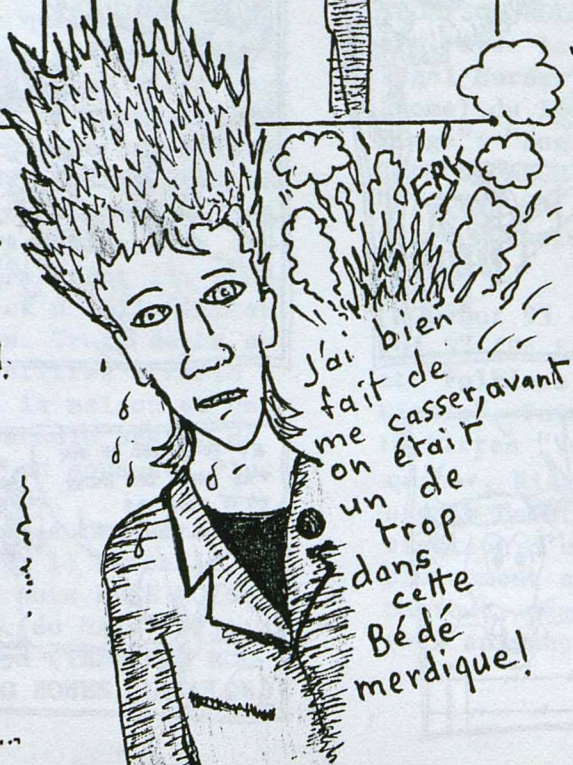 ERK
j'ai bien
fait de
me casser, avant
on était
un de
trop
dans
cette
Bédé
merdique!